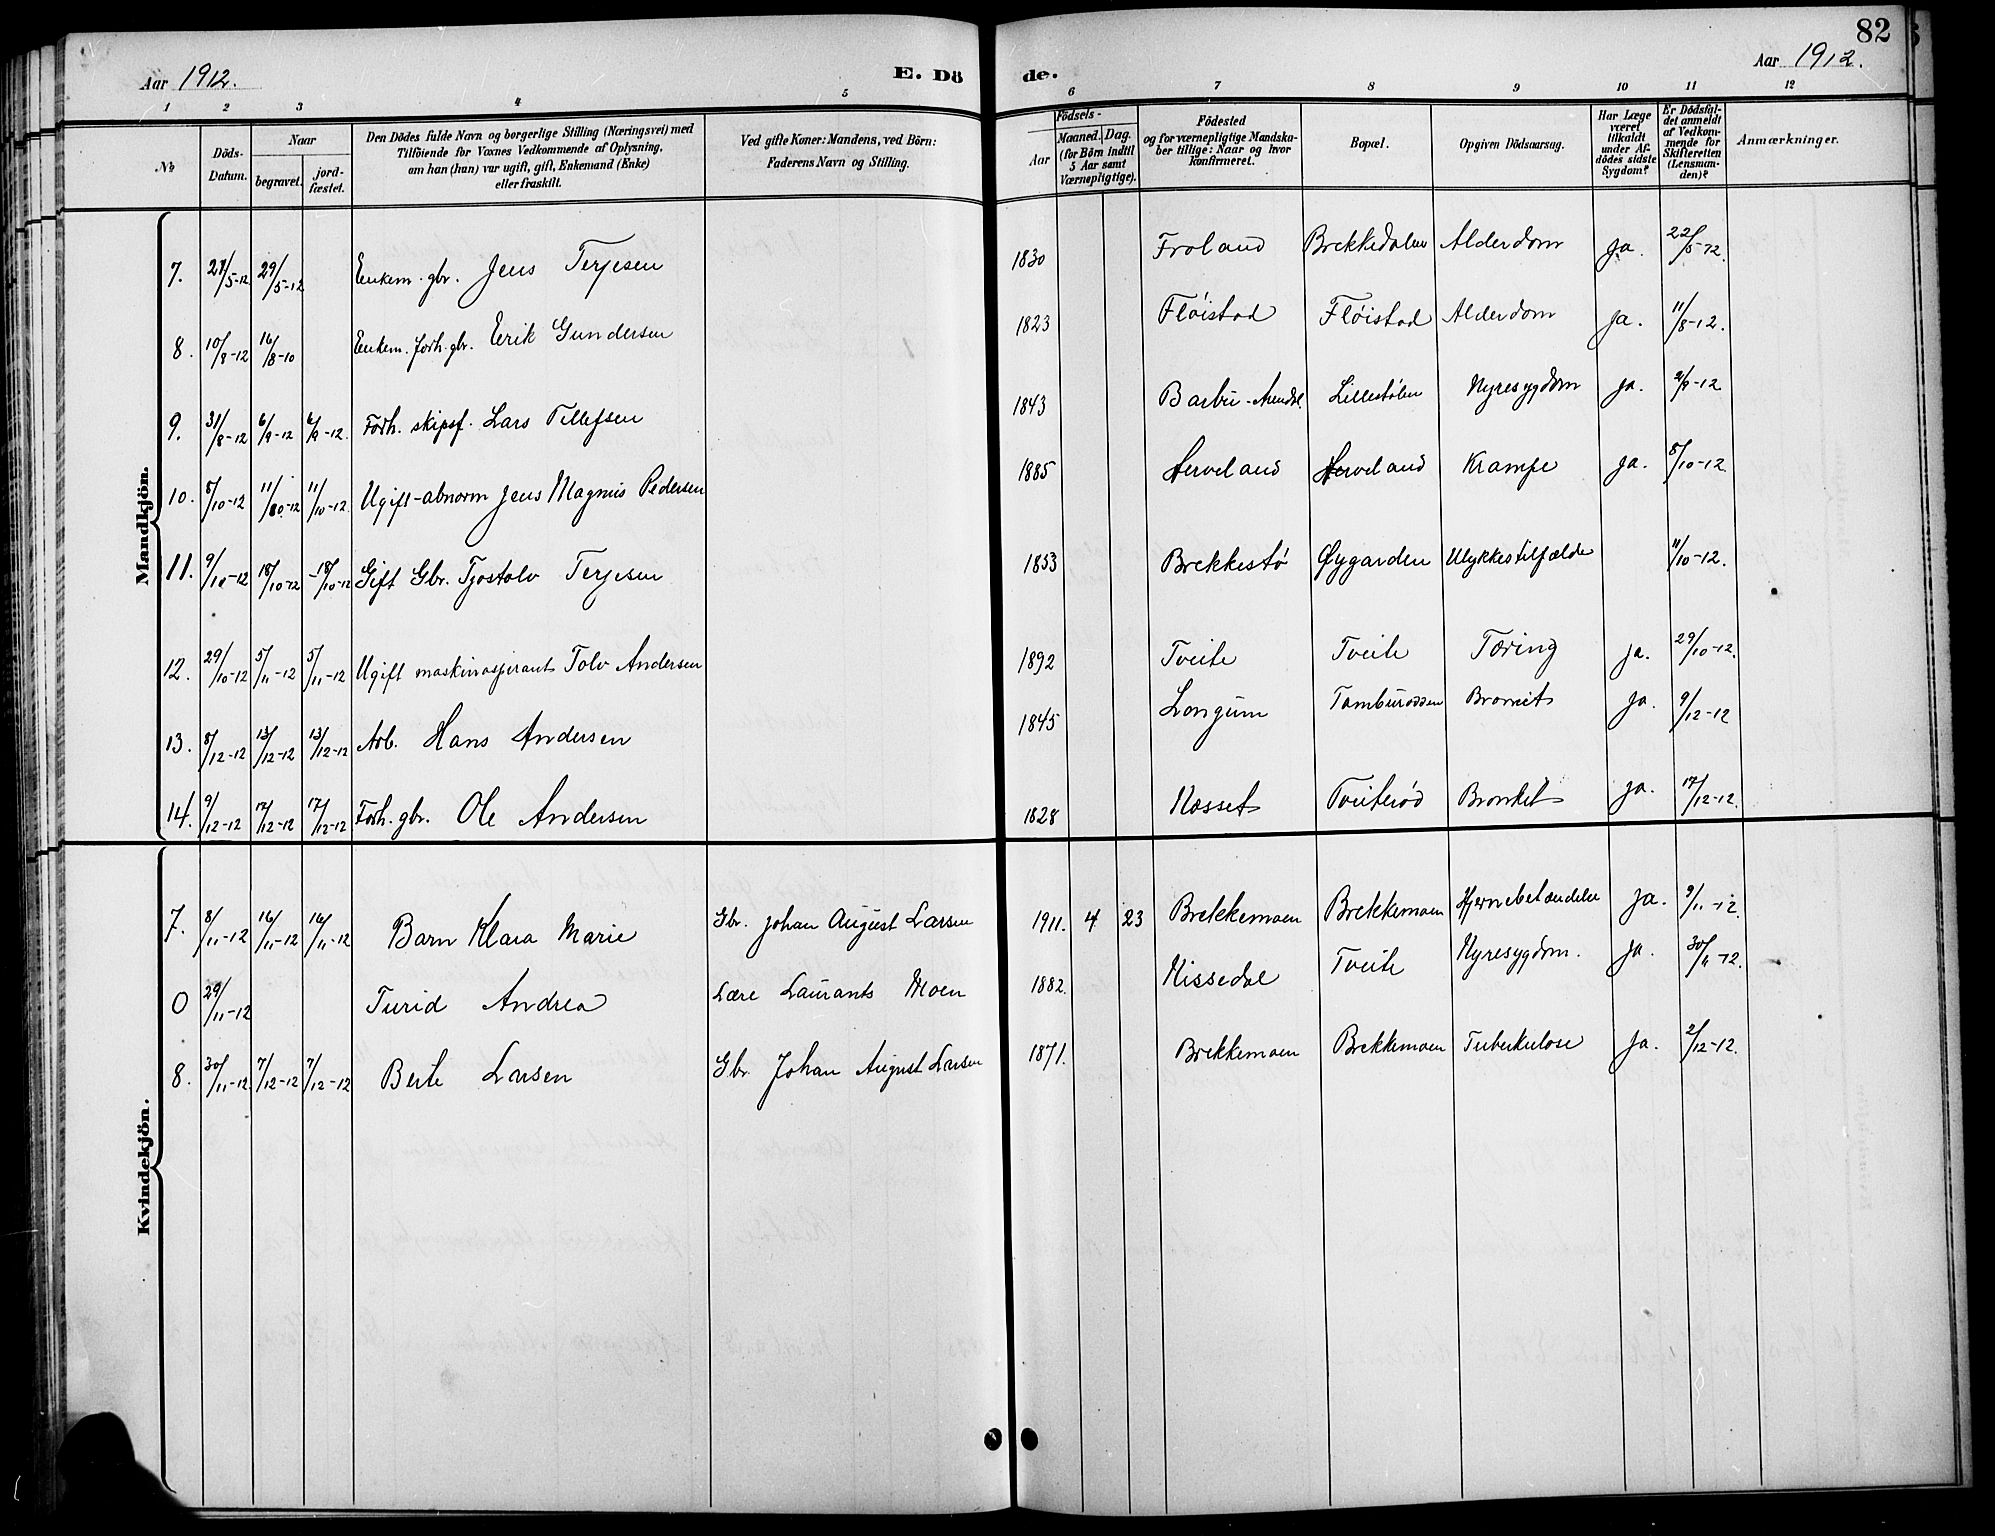 82
Aar 1912.
E. Dö
de.
Aar 1912.
1 2 3 4 5 6 7 8 9 10 11 12
No
Döds-
Datum.
Naar
begravet.
jord-
fæstet.
Den Dödes fulde Navn og borgerlige Stilling (Næringsvei) med
Tilföiende for Voxnes Vedkommende af Oplysning,
om han (hun) var ugift, gift, Enkemand (Enke)
eller fraskilt.
Ved gifte Koner: Mandens, ved Börn:
Faderens Navn og Stilling.
Födsels-
Aar
Maaned. Dag.
(for Börn indtil
5 Aar samt
Værnepligtige).
Födested
og for værnepligtige Mandska-
ber tillige: Naar og hvor
konfirmeret.
Bopæl.
Opgiven Dödsaarsag.
Har Læge
været
tilkaldt
under Af-
dödes sidste
Sygdom?
Er Dödsfal-
det anmeldt
af Vedkom-
mende for
Skifteretten
(Lensman-
den)?
Anmærkninger.
Mandkjön.
7. 21/5-12 29/5-12 Enkem. gbr. Jens Terjesen 1830 Froland Brekkedalen Alderdom ja. 22/5-12.
8. 10/8-12 16/8-10 Enkem. forh. gbr. Eerik Gundersen 1823 Fløistad Fløistad Alderdom ja. 11/8-12.
9. 31/8-12 6/9-12 6/9-12. Forh. skipsf. Lars Tellefsen 1843 Barbu-Arendal. Lillestølen Nyresygdom ja. 2/9-12
10. 8/10-12 11/10-12 11/10-12. Ugift-abnorm Jens Magnus Pedersen 1885 Herveland Herveland Krampe ja. 8/10-12.
11. 9/10-12 18/10-12 -18/10-12 Gift Gbr. Tjostolv Terjesen 1853 Brekkestø Øygarden Ulykkestilfælde 11/10-12.
12. 29/10-12 5/11-12 5/11-12 Ugift maskinaspirant Tolv Andersen 1892 Tveite Tveite Tæring ja. 29/10-12.
13. 8/12-12 13/12-12 13/12-12 Arb. Hans Andersen 1845 Longum Tamburaasen ja. 9/12-12
14. 9/12-12 17/12-12 17/12-12 Forh. gbr. Ole Andersen 1828 Næsset Tveiterød Bronkit ja. 17/12-12.
Kvindekjön.
7. 8/11-12 16/11-12 16/11-12 Barn Klara Marie Gbr. Johan August Larsen 1911. 4 23 Brekkemoen Brekkemoen Hjernebetændelse ja. 9/11-12.
0 29/11-12 Turid Andrea Lære Laurants Moen 1882. Nissedal Tveite Nyresygdom. ja. 30/11-12.
8. 30/11-12. 7/12-12 7/12-12 Berte Larsen Gbr. Johan August Larsen 1871. Brekkemoen Brekkemoen Tuberkulose ja. 2/12-12.